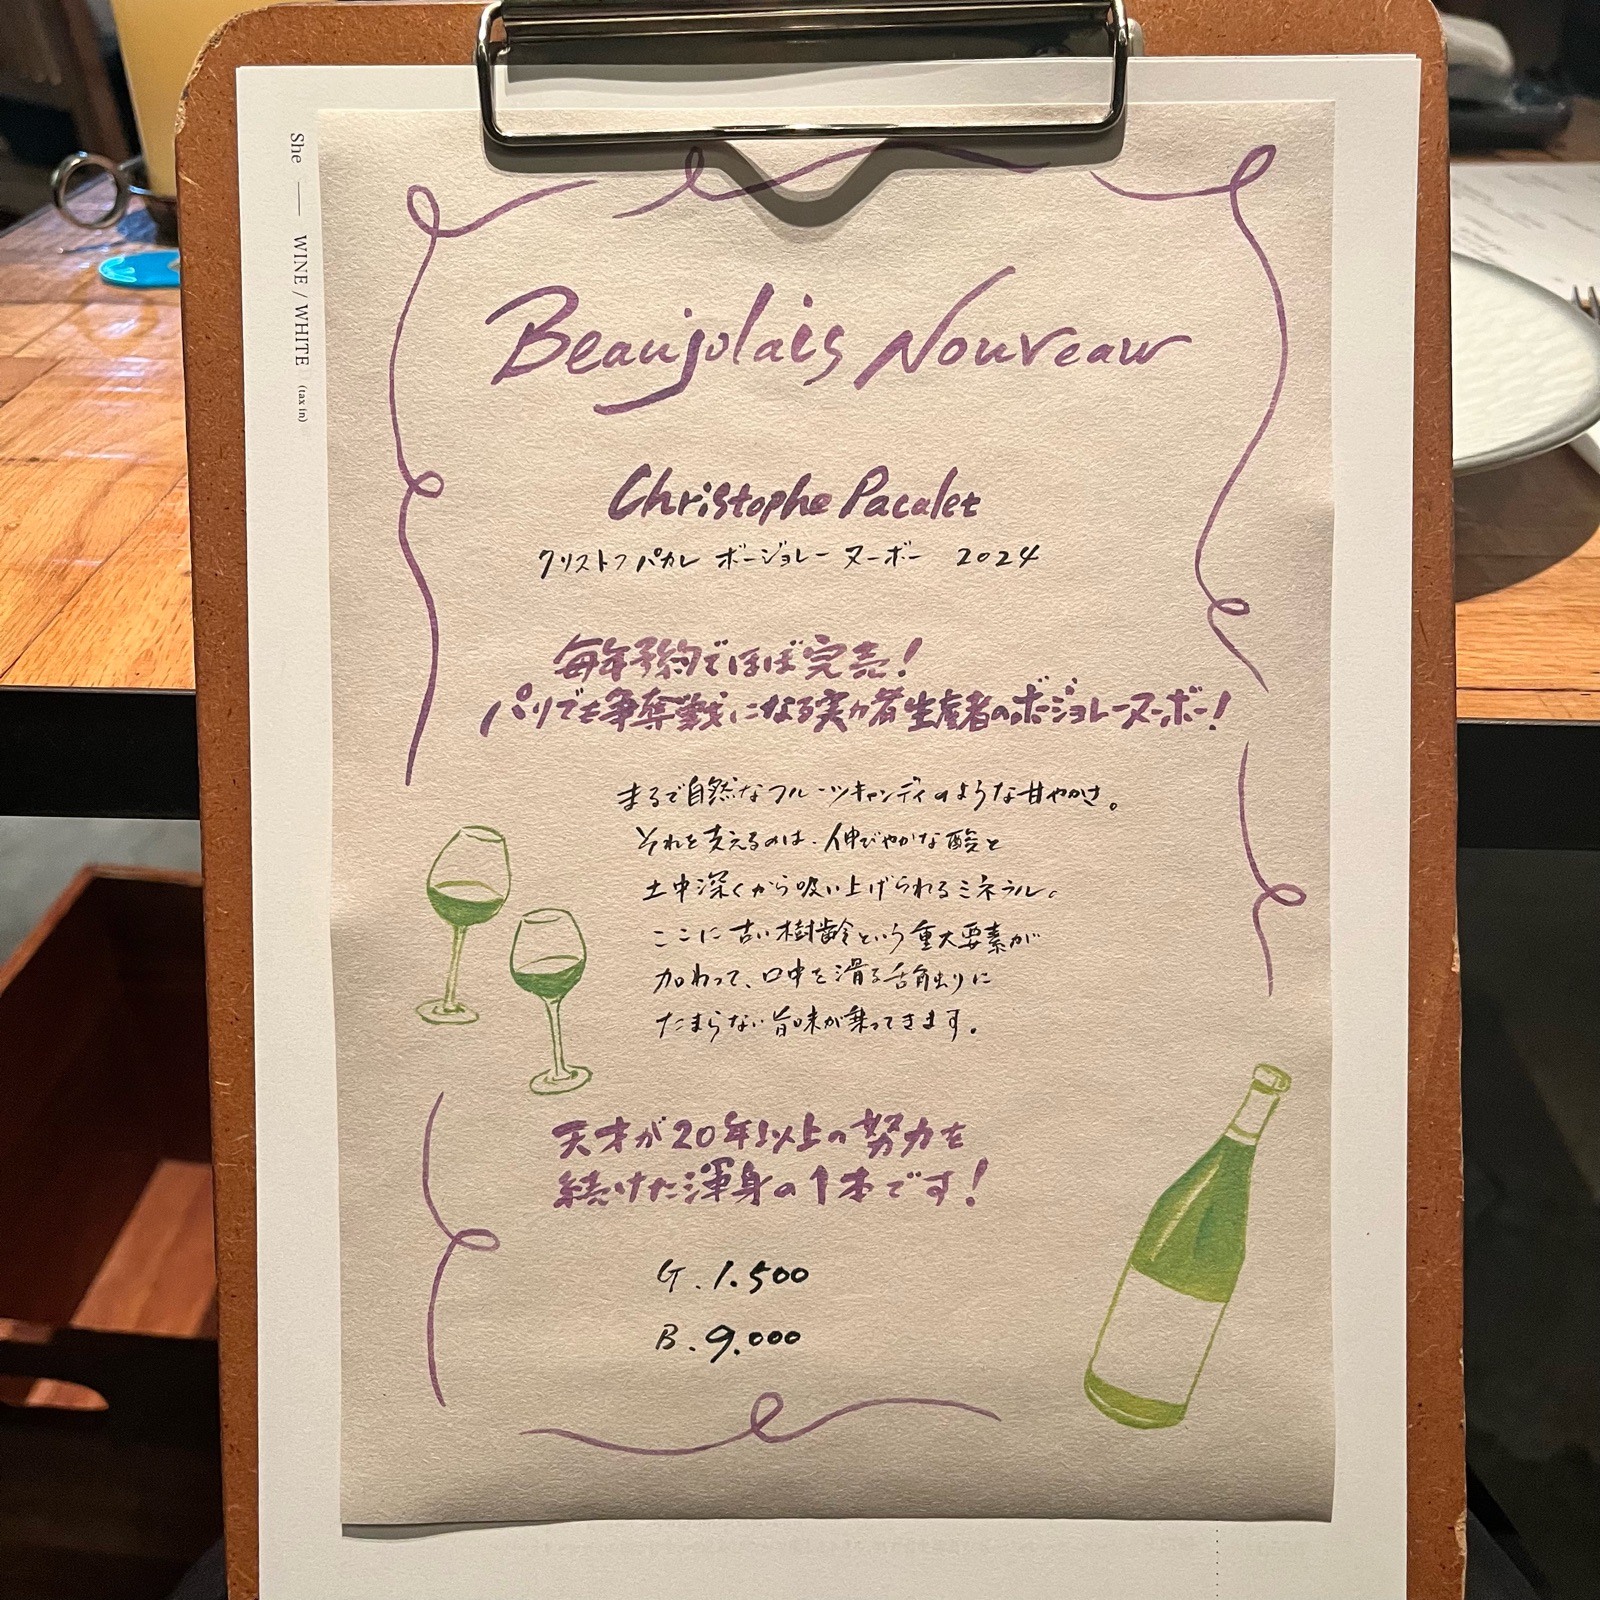 She — WINE / WHITE (tax in)
Beaujolais Nouveau
Christophe Pacalet
クリストフ パカレ ボージョレー ヌーボー 2024
毎年予約でほぼ完売！
パリでも争奪戦になる実力者生産者のボージョレーヌーボー！
まるで自然なフルーツキャンディのような甘やかさ。
それを支えるのは、伸びやかな酸と
土中深くから吸い上げられるミネラル。
ここに古い樹齢という重大要素が
加わって、口中を滑る舌触りに
たまらない旨味が乗ってきます。
天才が20年以上の努力を
続けた渾身の1本です！
G. 1.500
B. 9.000